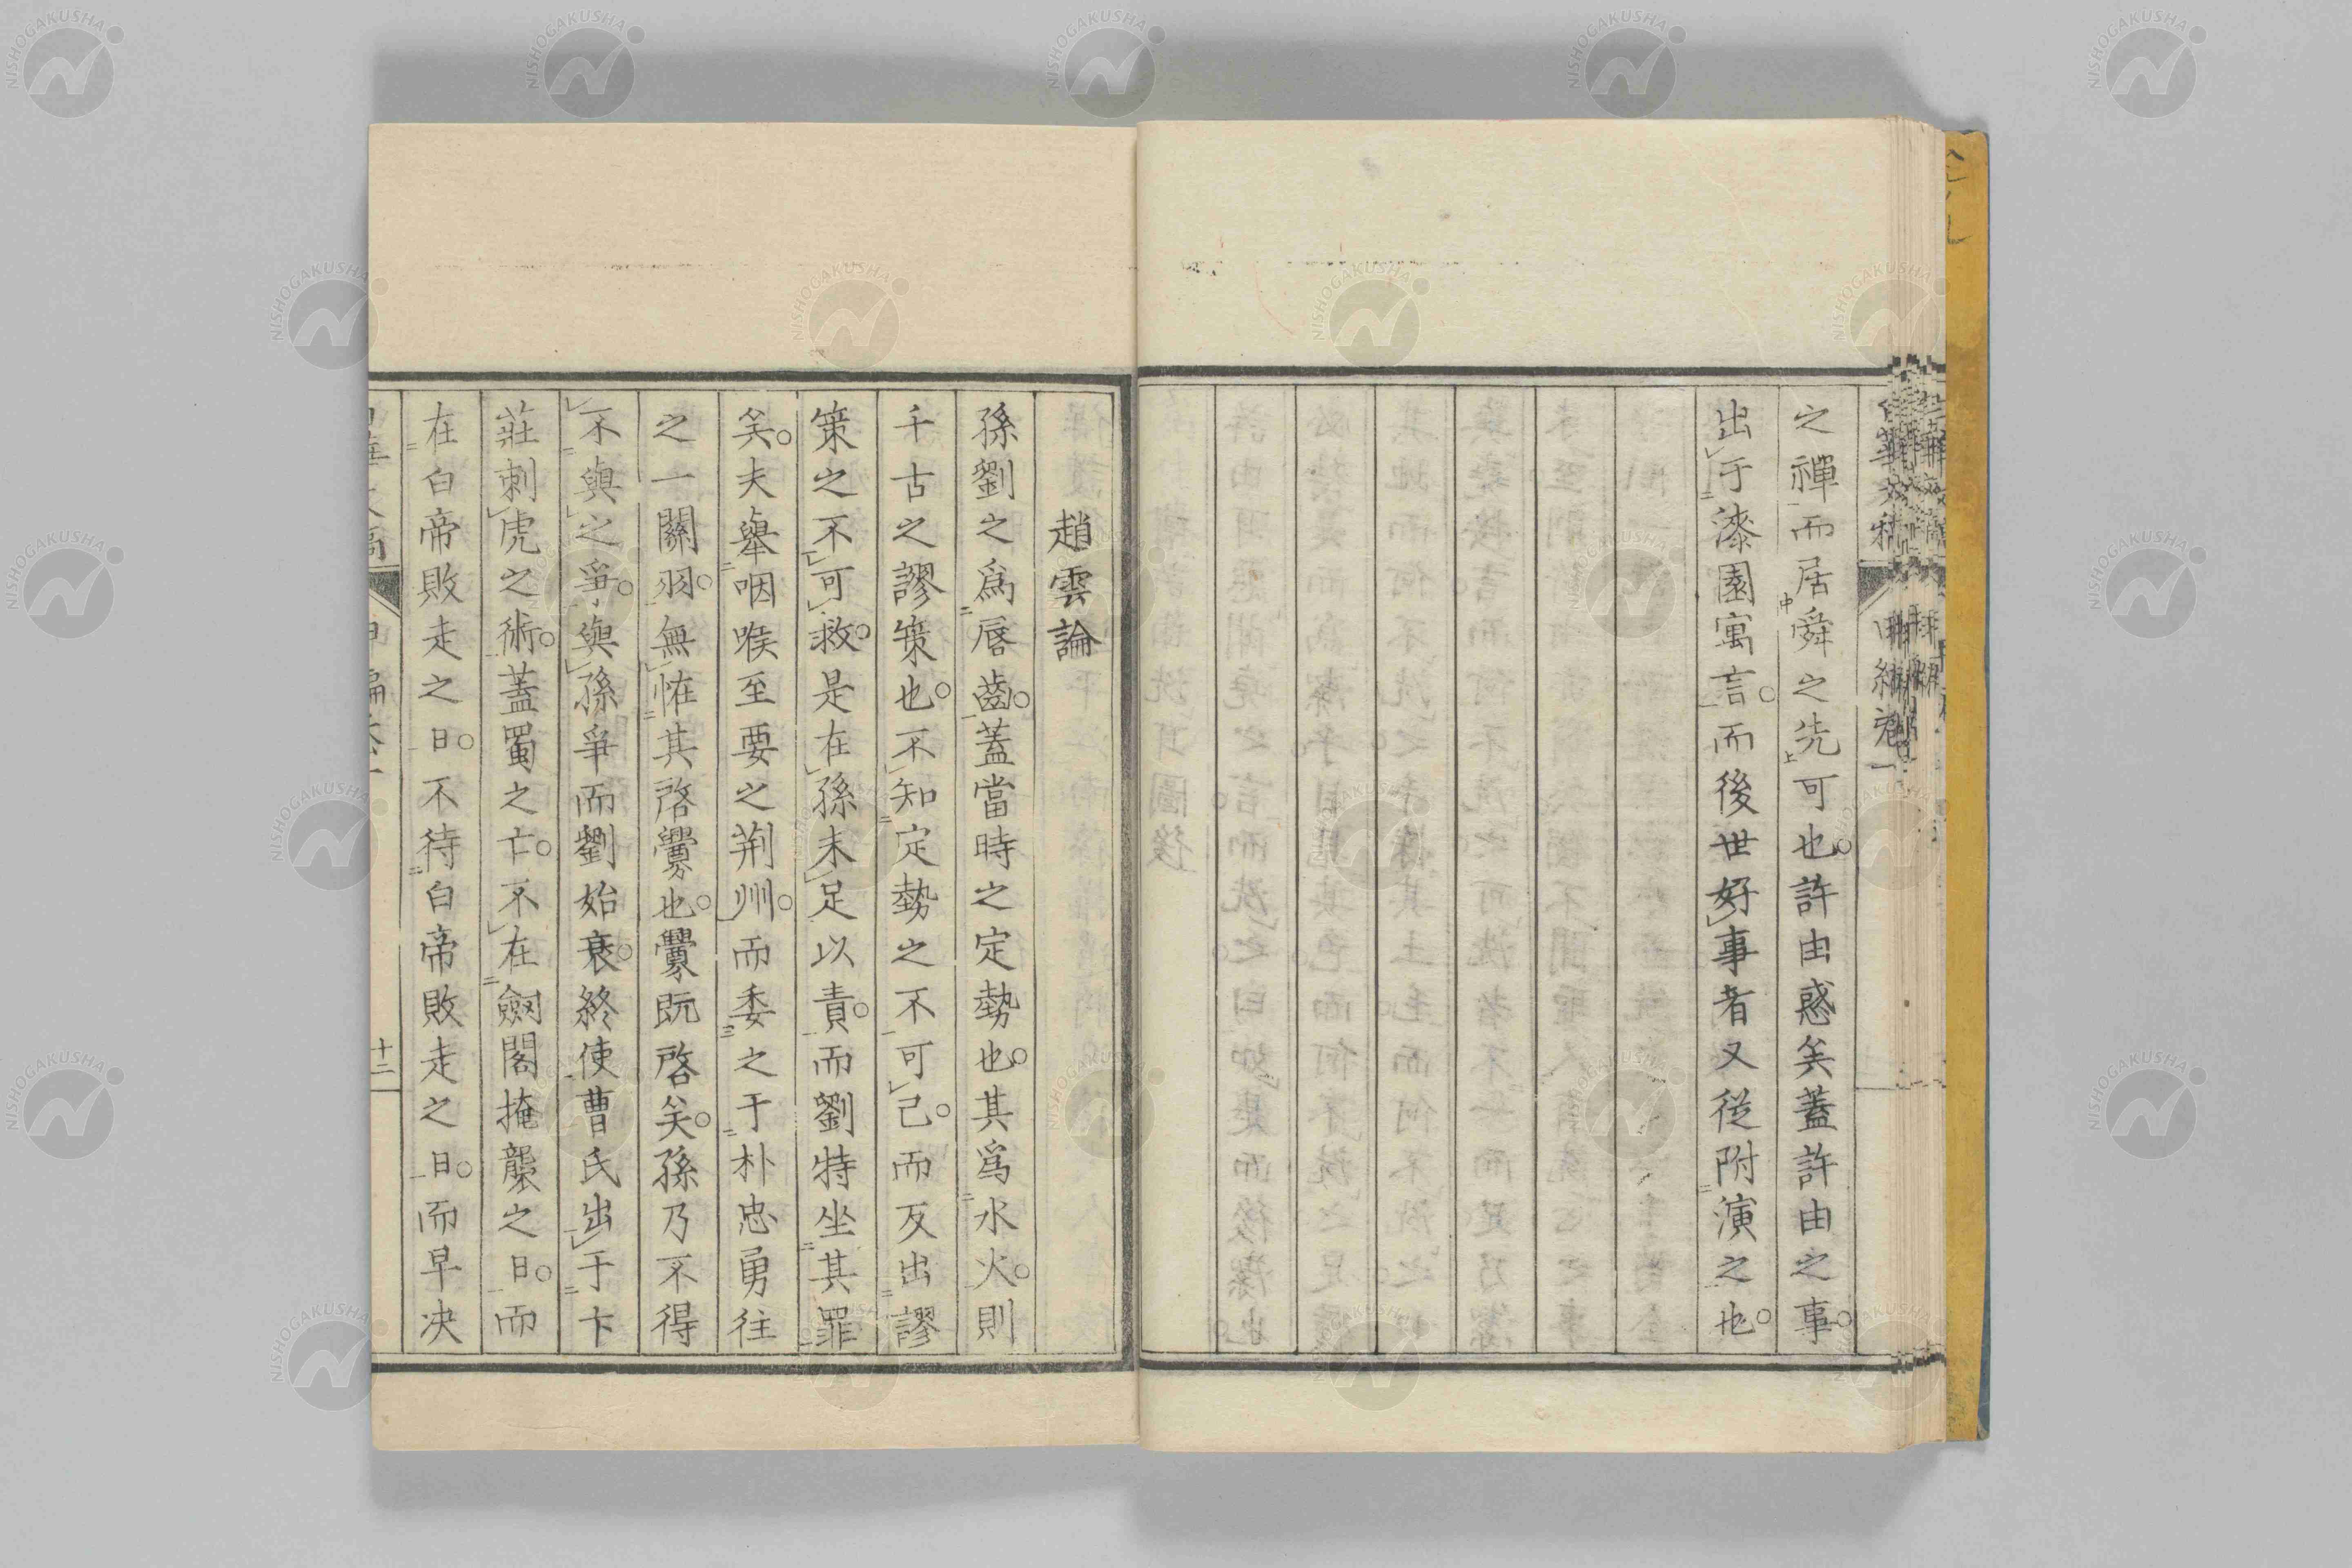 之禪而居舜之先可也。許由惑矣蓋許由之事。
出于漆園寓言。而後世好事者又從附演之也。
趙雲論
孫劉之爲唇齒。蓋當時之定勢也。其爲水火。則
千古之謬策也。不知定勢之不可已。而反出謬
策之不可救。是在孫未足以責。而劉特坐其罪
矣。夫舉咽喉至要之荊州。而委之于朴忠勇往
之一關羽。無恠其啓釁也。釁既啓矣。孫乃不得
不與之爭。與孫爭而劉始衰。終使曹氏出于卞
莊刺虎之術。蓋蜀之亡。不在劔閣掩襲之日。而
在白帝敗走之日。不待白帝敗走之日。而早決
十二
NISHOGAKUSHA